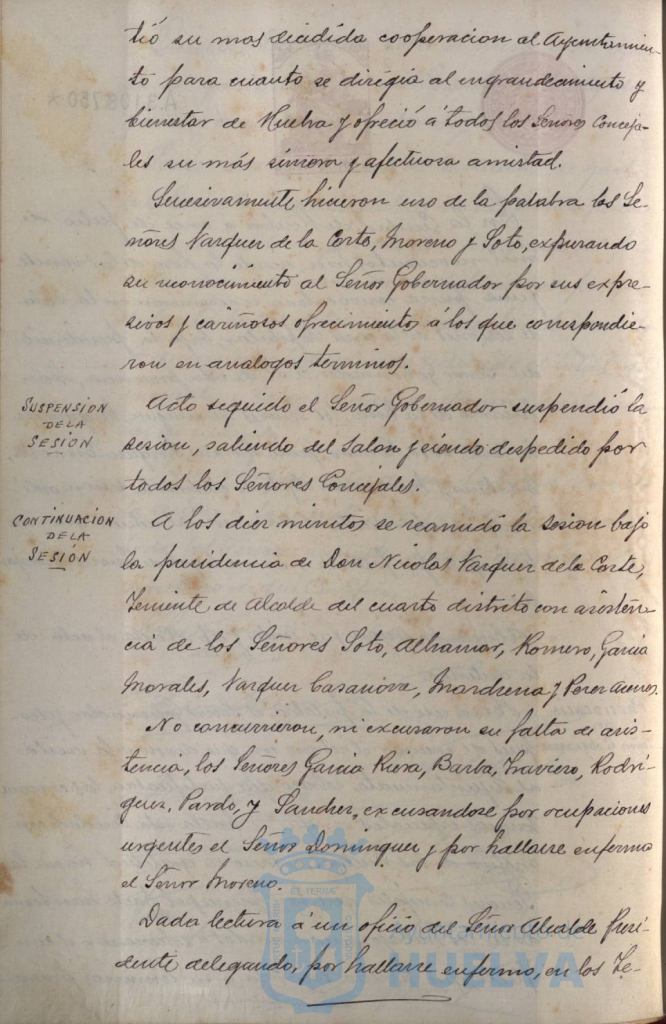 tió su mas decidida cooperacion al Ayuntamien-
to para cuanto se dirigia al engrandecimiento y
bienestar de Huelva y ofreció á todos los Señores Conceja-
les su más sincera y afectuosa amistad.
Sucesivamente hicieron uso de la palabra los Se-
ñores Vazquez de la Corte, Moreno y Soto, expresando
su reconocimiento al Señor Gobernador por sus expre-
sivos y cariñosos ofrecimientos á los que correspondie-
ron en analogos terminos.
SUSPENSION
DE LA
SESIÓN
Acto seguido el Señor Gobernador suspendió la
sesion, saliendo del Salon y siendo despedido por
todos los Señores Concejales.
CONTINUACION
DE LA
SESIÓN
A los diez minutos se reanudó la sesion bajo
la presidencia de Don Nicolas Vazquez de la Corte,
Teniente de Alcalde del cuarto distrito con asisten-
cia de los Señores Soto, Alhamar, Romero, Garcia
Morales, Vazquez Casanova, Mardrena y Perez
No concurrieron, ni excusaron su falta de asis-
tencia, los Señores Garcia Riera, Barba, Traviero, Rodri-
guez, Pardo, y Sanchez, excusandose por ocupaciones
urgentes el Señor Dominguez y por hallarse enfermo
el Señor Moreno.
Dada lectura á un oficio del Señor Alcalde Presi-
dente delegando, por hallarse enfermo, en los Te-
HUELVA